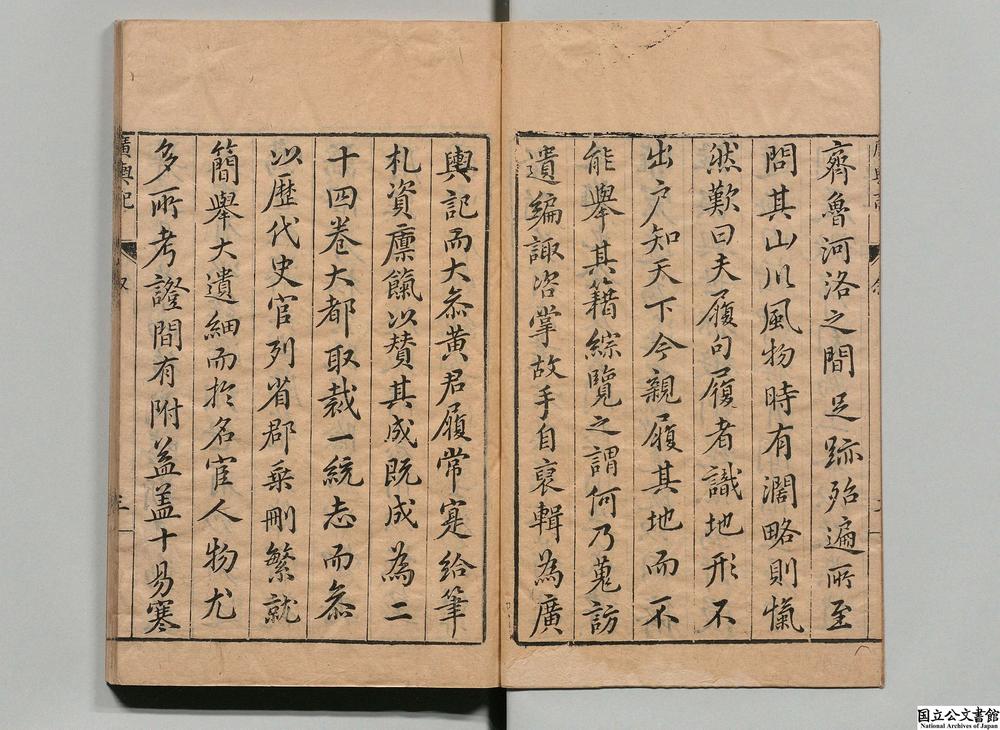 齊魯河洛之間足跡殆遍所至
問其山川風物時有濶略則愾
然歎曰夫履句履者識地形不
出户知天下今親履其地而不
能舉其籍綜覽之謂何乃蒐訪
遺編諏咨掌故手自裒輯為廣
輿記而大叅黄君履常寔給筆
札資廩餼以賛其成既成為二
十四卷大都取裁一統志而叅
以歷代史官列省郡乗刪繁就
簡舉大遺細而扵名宦人物尤
多所考證間有附益盖十易寒
廣輿記
叙
国立公文書館
National Archives of Japan